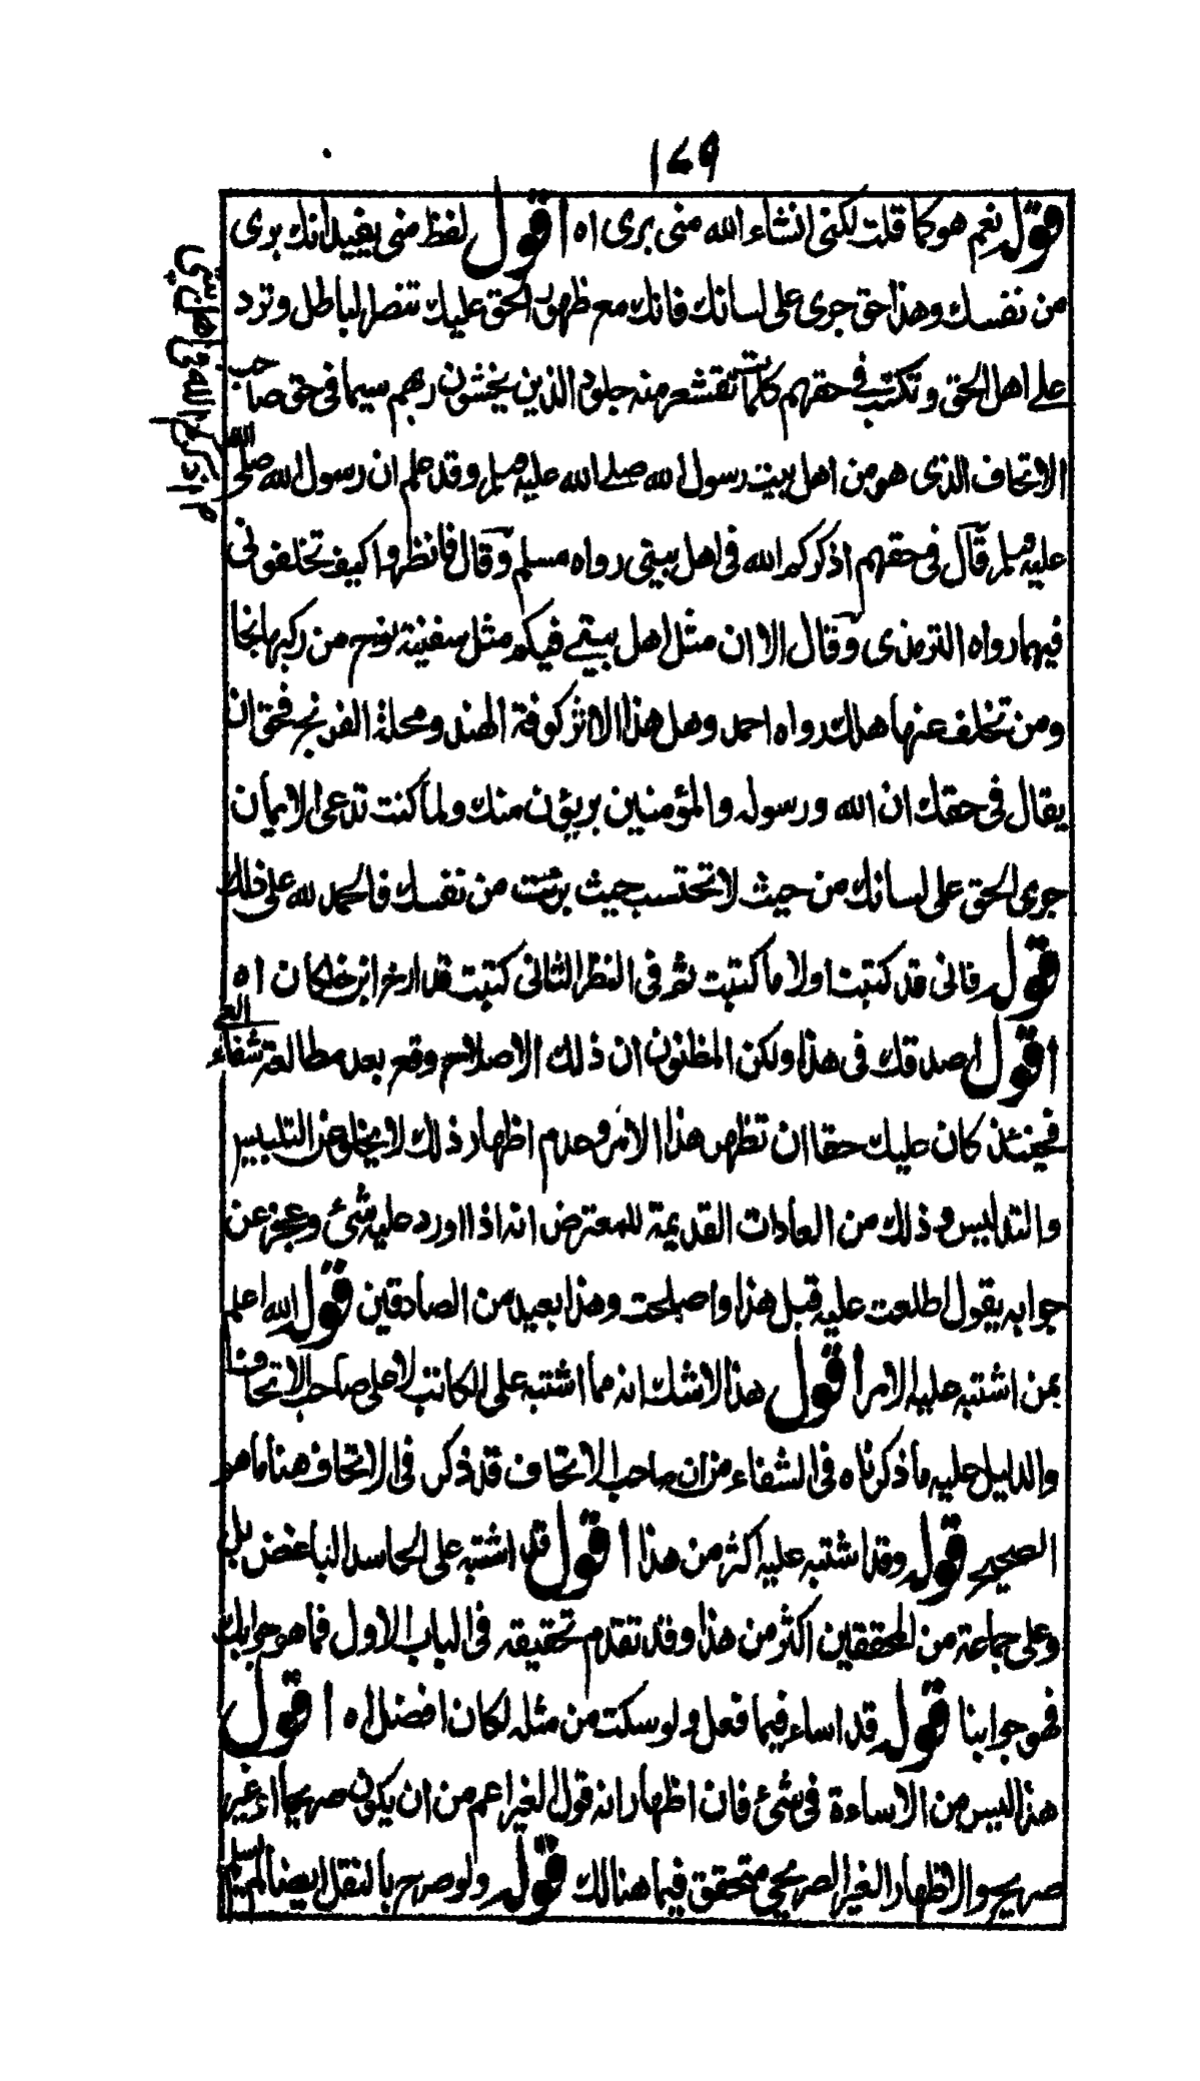 ١٧٩
قوله نعم هو كما قلت لكنى انشاء الله منى برى اه اقول لفظ منى يفيد انك برى
من نفسك وهذا حق جرى على لسانك فانك مع ظهور الحق عليك تنصر الباطل وترد
على اهل الحق وتكتب فى حقهم كلمات تقشعر منه جلود الذين يخشون ربهم سيما فى حق صاحب
الاتحاف الذى هو من اهل بيت رسول الله صلى الله عليه وسلم وقد علم ان رسول الله صلى الله
عليه وسلم قال فى حقهم اذكركم الله فى اهل بيتى رواه مسلم وقال فانظروا كيف تخلفونى
فيهما رواه الترمذى وقال الا ان مثل اهل بيتى فيكم مثل سفينة نوح من ركبها نجا
ومن تخلف عنها هلك رواه احمد وهل هذا الا اثر كوفة الهند ومحلة الفرنج فحق ان
يقال فى حقك ان الله ورسوله والمؤمنين بريؤن منك ولما كنت تدعى الايمان
جرى الحق على لسانك من حيث لا تحتسب حيث برئت من نفسك فالحمد لله على ذلك
قوله فانى قد كتبت اولا ما كتبت ثم فى النظر الثانى كتبت قد ارخ ابن خلكان اه
اقول اصدقك فى هذا ولكن المظنون ان ذلك الاصلاح وقع بعد مطالعة شفاء العى
فحينئذ كان عليك حقا ان تظهر هذا الامر وعدم اظهار ذلك لا يخلو عن التلبيس
والتدليس وذلك من العادات القديمة للمعترض انه اذا اورد عليه شئ وعجز عن
جوابه يقول اطلعت عليه قبل هذا واصلحت وهذا بعيد من الصادقين قوله الله اعلم
بمن اشتبه عليه الامر اقول هذا لا شك انه مما اشتبه على الكاتب لا على صاحب الاتحاف
والدليل عليه ما ذكرناه فى الشفاء من ان صاحب الاتحاف قد ذكر فى الاتحاف هنا ما هو
الصحيح قوله وقد اشتبه عليه اكثر من هذا اقول قد اشتبه على الحاسد الباغض بل
وعلى جماعة من المحققين اكثر من هذا وقد تقدم تحقيقه فى الباب الاول فما هو جوابك
فهو جوابنا قوله قد اساء فيما فعل ولو سكت من مثله لكان افضل اه اقول
هذا ليس من الاساءة فى شئ فان اظهار انه قول الغير اعم من ان يكون صريحا او غير
صريح والاظهار الغير الصريحى متحقق فيما هنالك قوله ولو صرح بالنقل ايضا لم يسلم